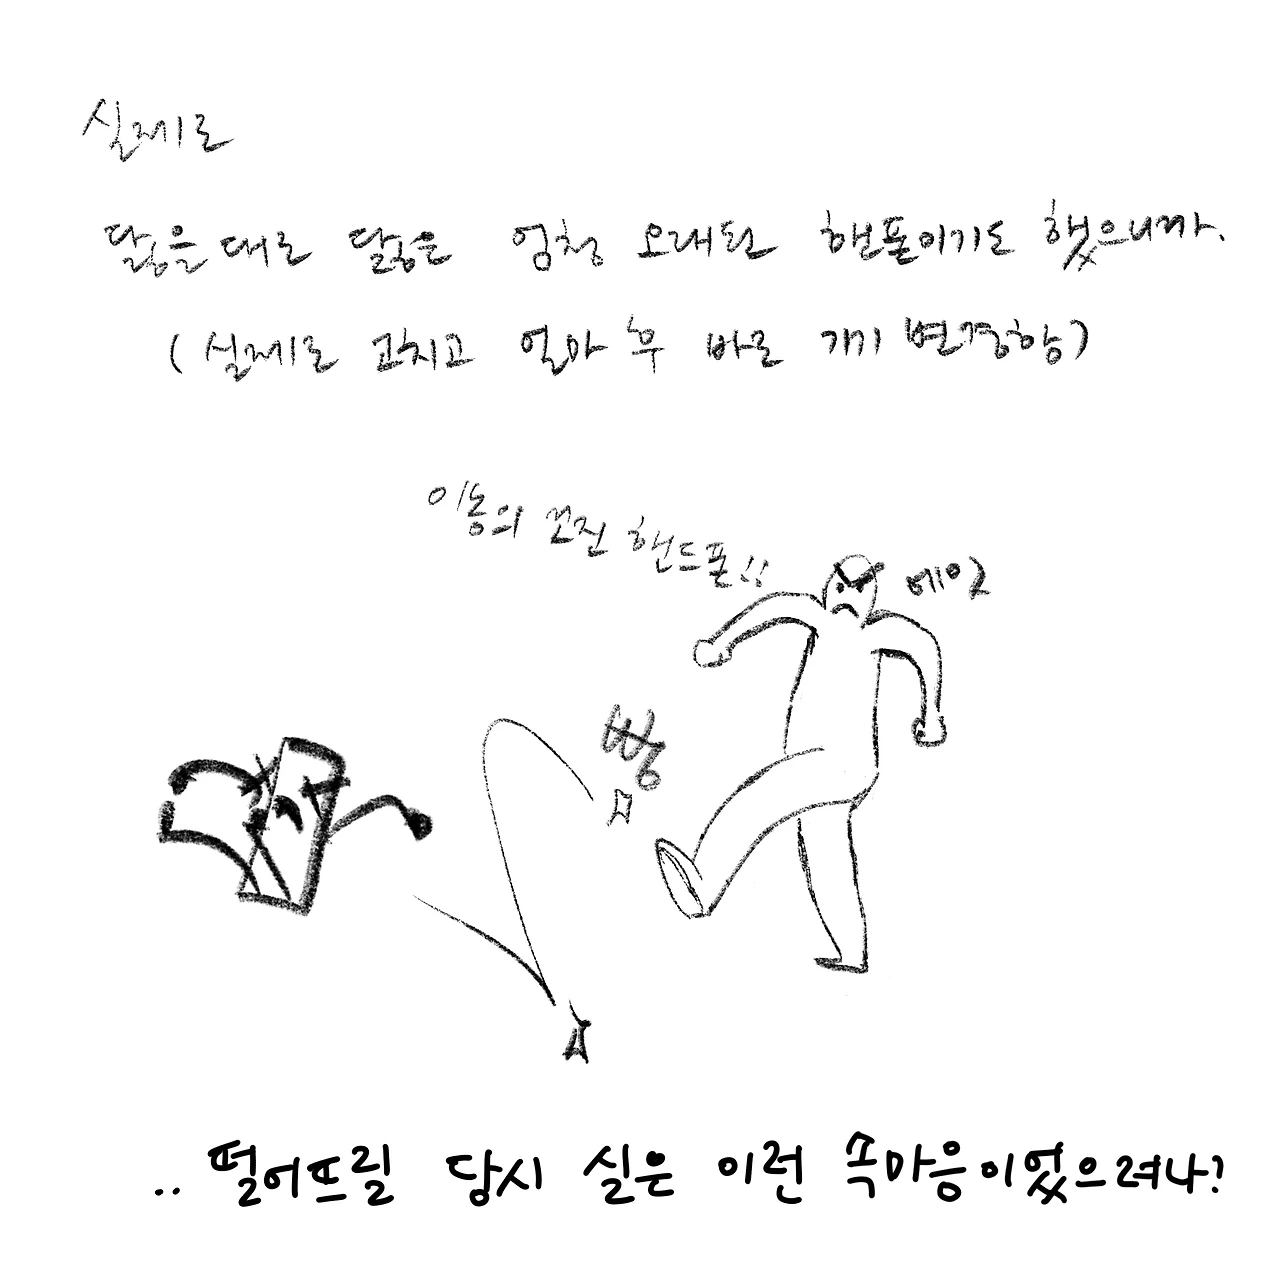 실제로
닳을대로 닳은 엄청 오래된 핸폰이기도 했으니까.
(실제로 고치고 얼마 후 바로 기기 변경함)
이놈의 꼬진 핸드폰!!
에잇
빵
.. 떨어뜨릴 당시 실은 이런 속마음이었으려나?